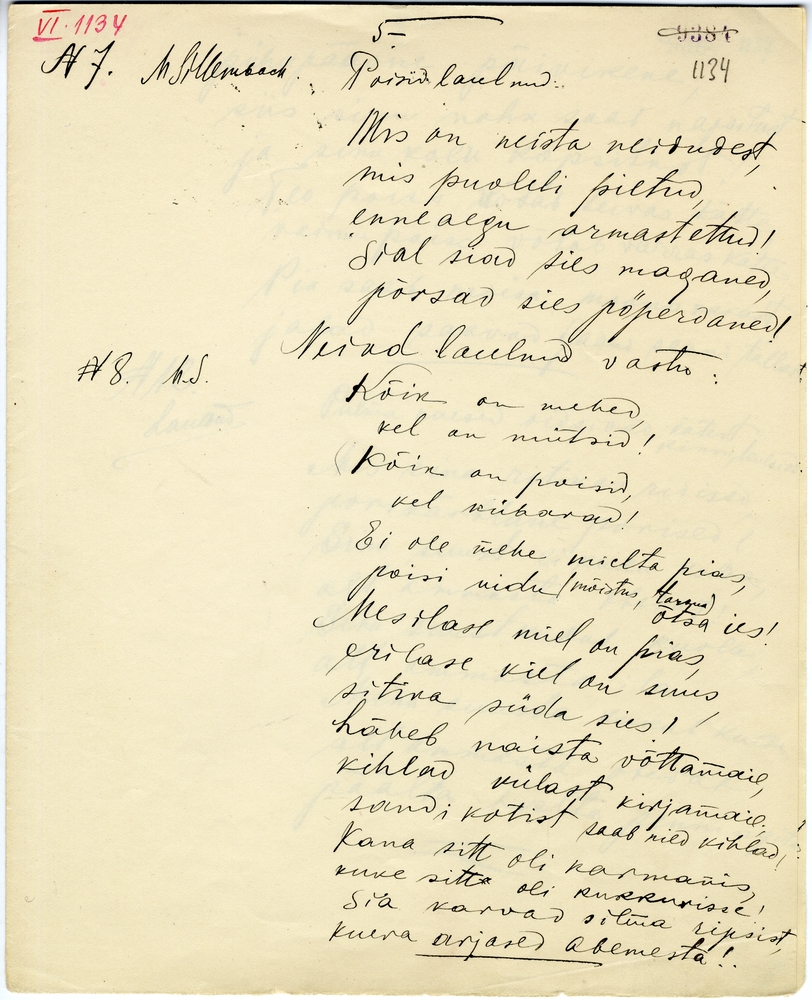 VI. 1134
5-
9384
1134
N 7. M Sillembach. Poisid laulnud:
Mis on neista neidudest,
mis puoleli pietud,
enneaegu armastettud!
Sial siad sies maganed,
põrsad sies pöperdaned!
Neiud laulnud vastu:
N 8. M.S.
Kõik on mehed,
kel on mütsid!
Kõik on poisid,
kel kübarad!
Ei ole mehe mielta pias,
poisi nidu (mõistus, tarqus) õtsa ies!
Mesilase miel on pias,
erilase kiel on suus,
sitika süda sies!
Läheb naista võttamaie,
kihlad külast kirjamaie;
sandi kotist saab nied kihlad!
Kana sitt oli karmanis,
kuke sitta oli kukkurisse!
Sia karvad silma ripsist,
kuera arjased abemesta!